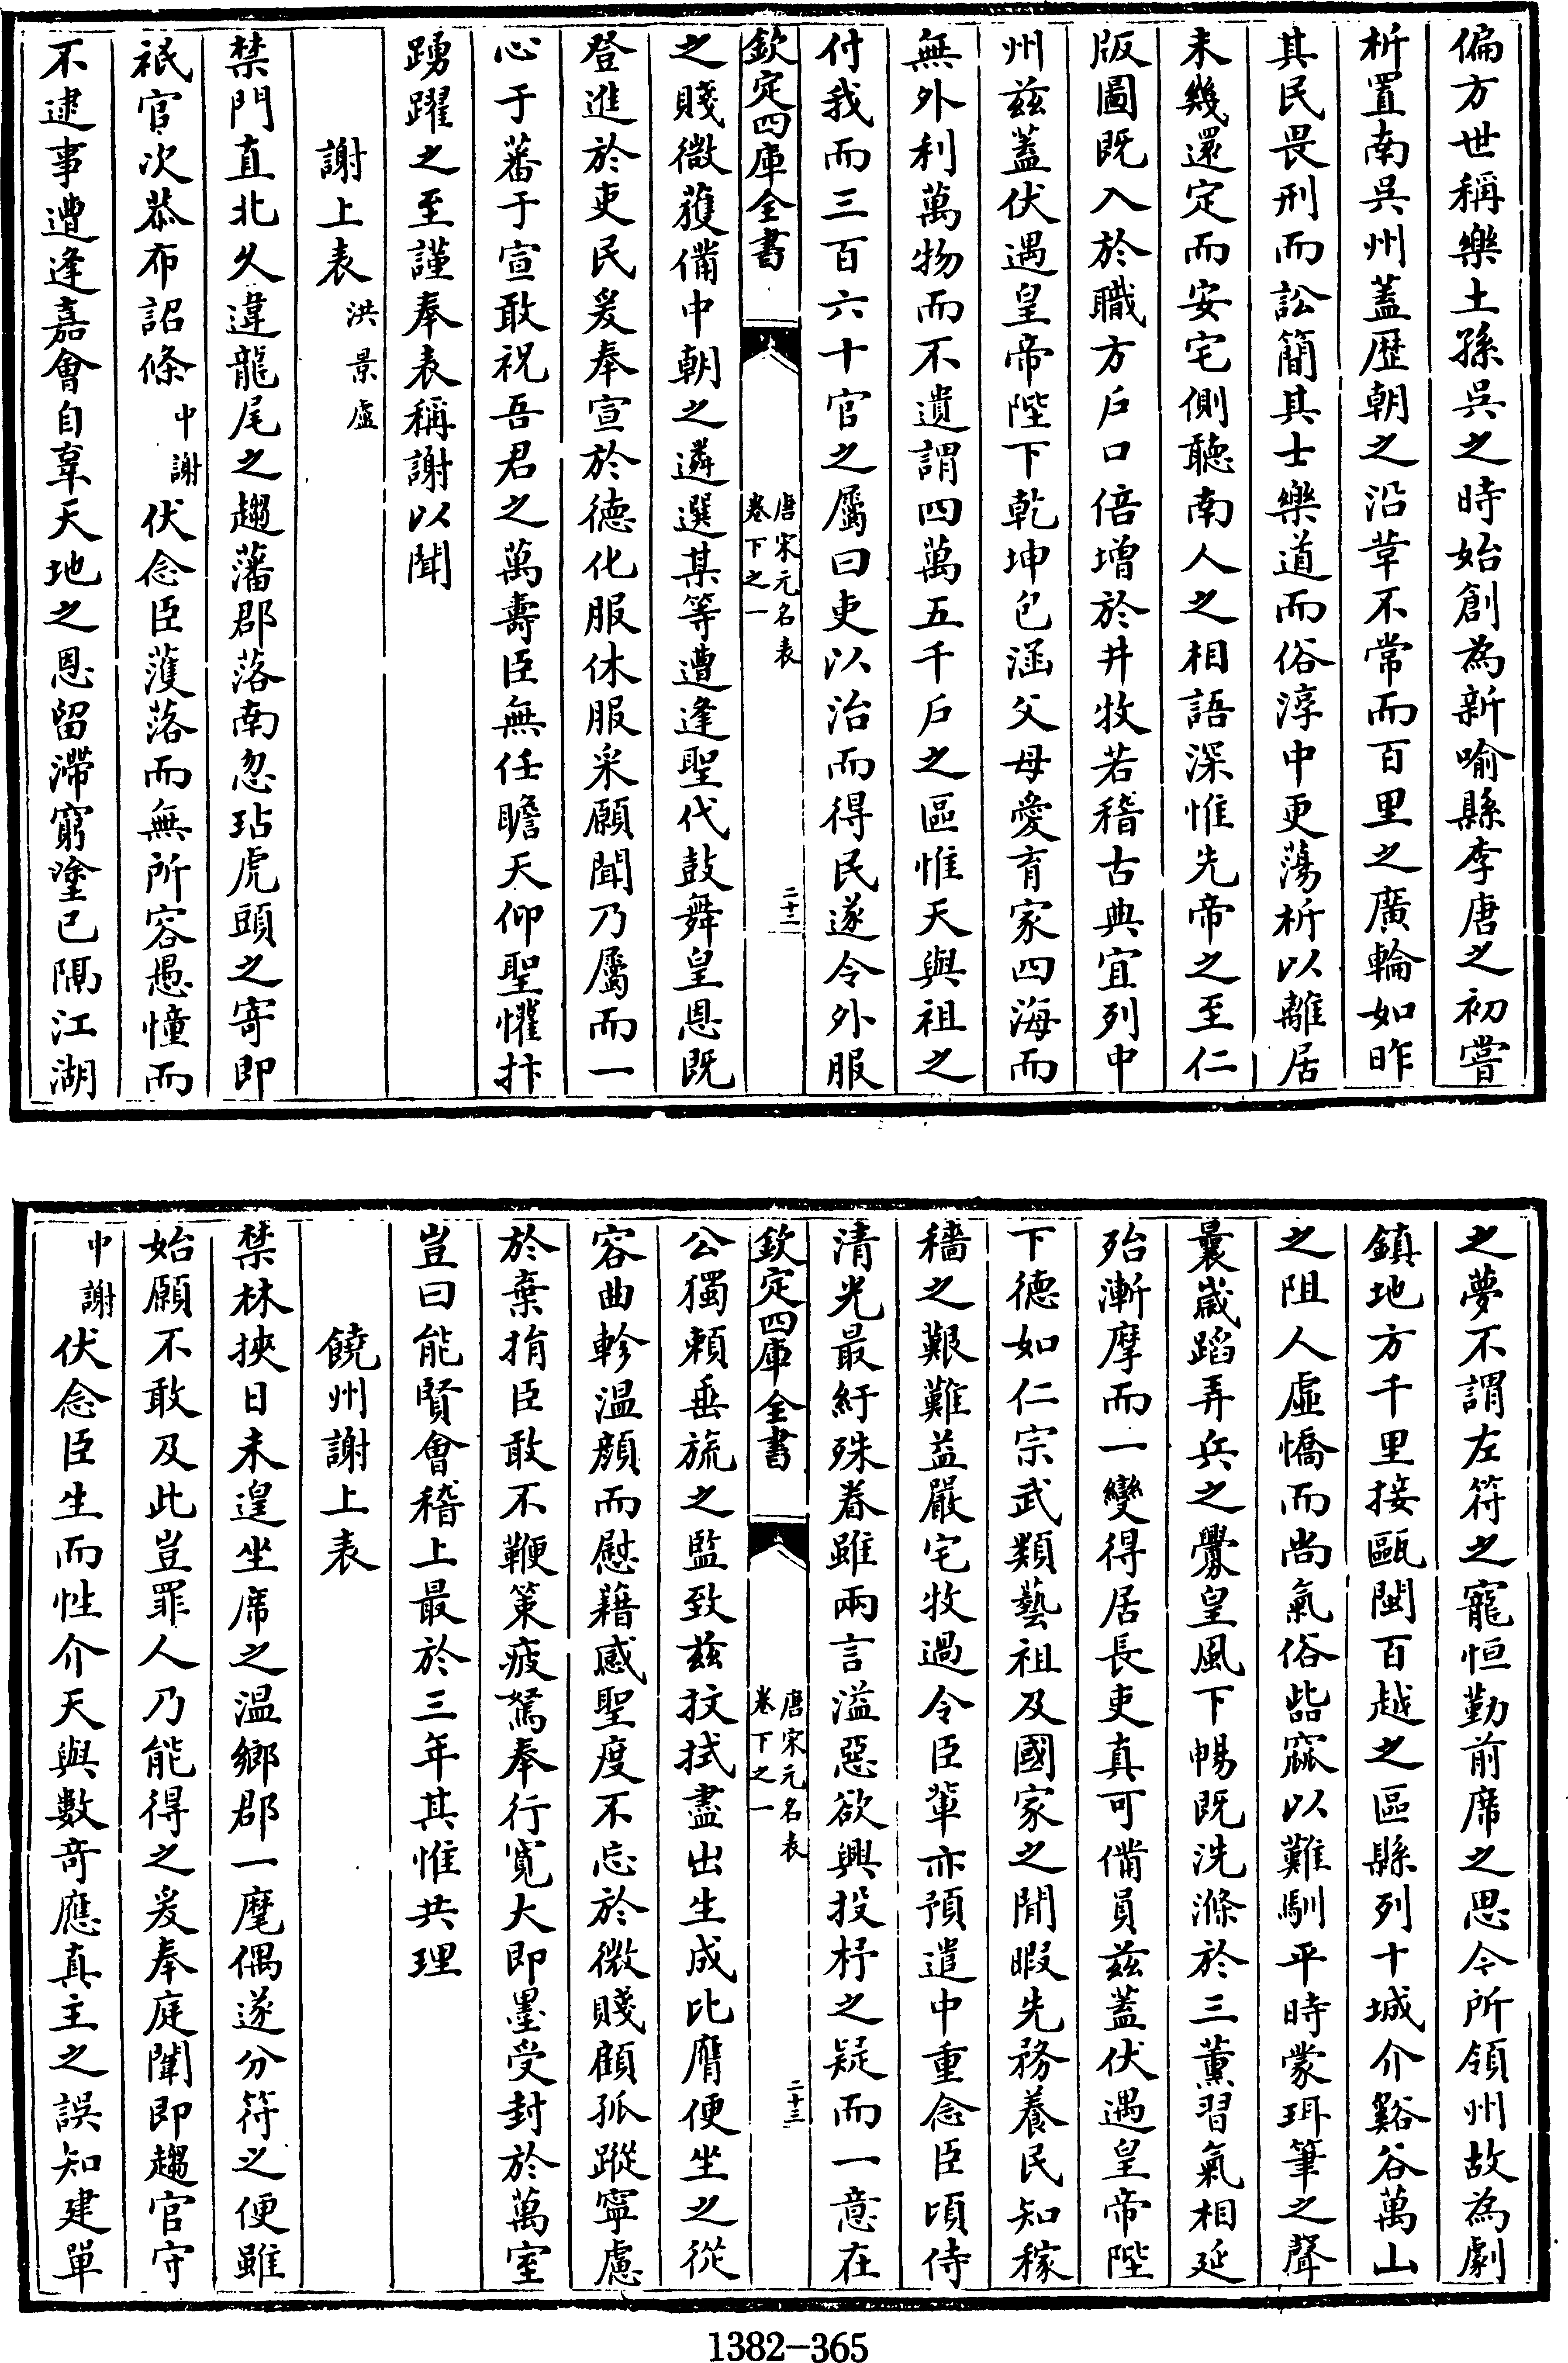 偏方世稱樂土孫吳之時始創為新喻縣李唐之初嘗
析置南吳州蓋歴朝之沿革不常而百里之廣輪如昨
其民畏刑而訟簡其士樂道而俗淳中更蕩析以離居
未幾還定而安宅側聽南人之相語深惟先帝之至仁
版圖既入於職方戶口倍增於井牧若稽古典宜列中
州兹蓋伏遇皇帝陛下乾坤包涵父母愛育家四海而
無外利萬物而不遺謂四萬五千戶之區惟天與祖之
付我而三百六十官之屬曰吏以治而得民遂令外服
欽定四庫全書
唐宋元名表
卷下之一
二十二
之賤微獲備中朝之遴選某等遭逢聖代鼓舞皇恩既
登進於吏民爰奉宣於德化服休服采願聞乃屬而一
心于蕃于宣敢祝吾君之萬壽臣無任瞻天仰聖懽抃
踴躍之至謹奉表稱謝以聞
謝上表 洪景盧
禁門直北久違龍尾之趨藩郡落南忽玷虎頭之寄即
祇官次恭布詔條中謝伏念臣濩落而無所容愚憧而
不逮事遭逢嘉會自辜天地之恩留滯窮塗已隔江湖
之夢不謂左符之寵恒勤前席之思今所領州故為劇
鎮地方千里接甌閩百越之區縣列十城介谿谷萬山
之阻人虛憍而尚氣俗呰窳以難馴平時蒙珥筆之聲
曩歳蹈弄兵之釁皇風下暢既洗滌於三薰習氣相延
殆漸摩而一變得居長吏真可備員兹蓋伏遇皇帝陛
下德如仁宗武類藝祖及國家之閒暇先務養民知稼
穡之艱難益嚴宅牧過令臣軰亦預遣中重念臣頃侍
清光最紆殊眷雖兩言溢惡欲興投杼之疑而一意在
欽定四庫全書
唐宋元名表
卷下之一
二十三
公獨賴垂旒之監致兹抆拭盡出生成比膺便坐之從
容曲軫温顔而慰藉感聖度不忘於微賤顧孤蹤寧慮
於棄捐臣敢不鞭策疲駑奉行寛大即墨受封於萬室
豈曰能賢會稽上最於三年其惟共理
饒州謝上表
禁林挾日未遑坐席之温鄉郡一麾偶遂分符之便雖
始願不敢及此豈罪人乃能得之爰奉庭闈即趨官守
中謝伏念臣生而性介天與數奇應真主之誤知建單
1382-365